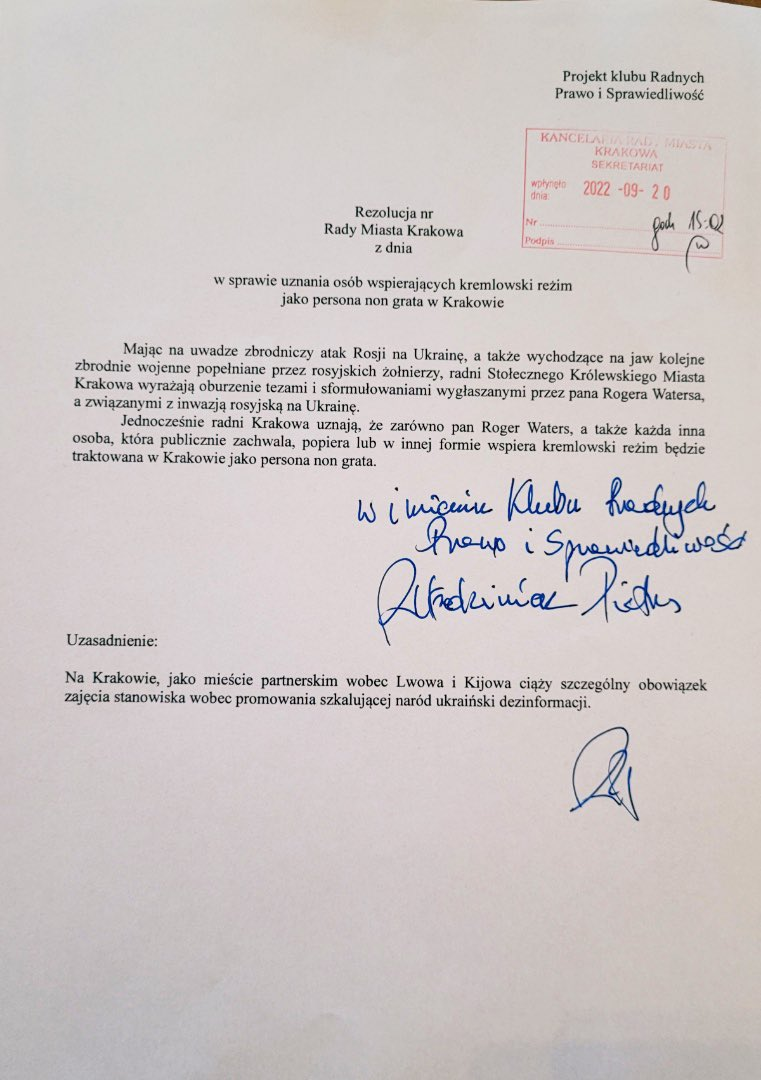 Projekt klubu Radnych
Prawo i Sprawiedliwość
KANCELARIA RADY MIASTA
KRAKOWA
SEKRETARIAT
wpłynęło
dnia:
2022 -09- 20
Nr
godz 15:02
Podpis
Rezolucja nr
Rady Miasta Krakowa
z dnia
w sprawie uznania osób wspierających kremlowski reżim
jako persona non grata w Krakowie
Mając na uwadze zbrodniczy atak Rosji na Ukrainę, a także wychodzące na jaw kolejne
zbrodnie wojenne popełniane przez rosyjskich żołnierzy, radni Stołecznego Królewskiego Miasta
Krakowa wyrażają oburzenie tezami i sformułowaniami wygłaszanymi przez pana Rogera Watersa,
a związanymi z inwazją rosyjską na Ukrainę.
Jednocześnie radni Krakowa uznają, że zarówno pan Roger Waters, a także każda inna
osoba, która publicznie zachwala, popiera lub w innej formie wspiera kremlowski reżim będzie
traktowana w Krakowie jako persona non grata.
w imieniu Klubu Radnych
Prawo i Sprawiedliwość
Włodzimierz Pietrus
Uzasadnienie:
Na Krakowie, jako mieście partnerskim wobec Lwowa i Kijowa ciąży szczególny obowiązek
zajęcia stanowiska wobec promowania szkalującej naród ukraiński dezinformacji.